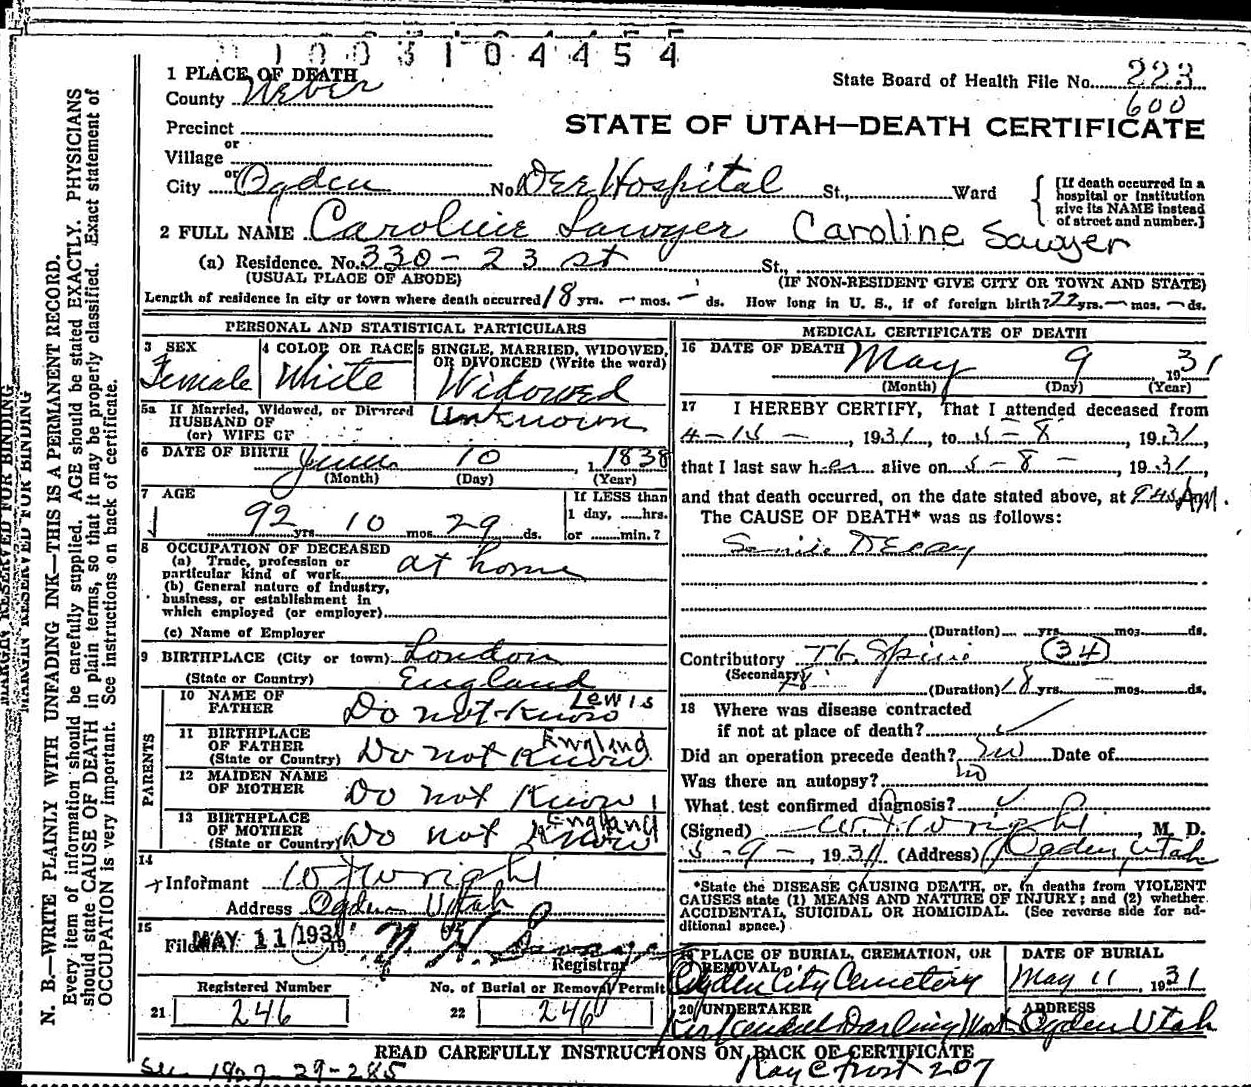 1003104454
1 PLACE OF DEATH
County Weber
State Board of Health File No. 223
600
Precinct
or
Village
STATE OF UTAH—DEATH CERTIFICATE
or
City Ogden No. Dee Hospital St., Ward
[If death occurred in a
hospital or institution
give its NAME instead
of street and number.]
2 FULL NAME Caroline Sawyer Caroline Sawyer
(a) Residence. No. 330 - 23 st St.,
(USUAL PLACE OF ABODE) (IF NON-RESIDENT GIVE CITY OR TOWN AND STATE)
Length of residence in city or town where death occurred 18 yrs. — mos. — ds. How long in U. S., if of foreign birth? 72 yrs. — mos. — ds.
PERSONAL AND STATISTICAL PARTICULARS
3 SEX
Female
4 COLOR OR RACE
White
5 SINGLE, MARRIED, WIDOWED,
OR DIVORCED (Write the word)
Widowed
5a If Married, Widowed, or Divorced
HUSBAND OF
(or) WIFE OF
Unknown
6 DATE OF BIRTH June 10, 1838
(Month) (Day) (Year)
7 AGE
92 yrs 10 mos 29 ds.
If LESS than
1 day, ......hrs.
or ......min.?
8 OCCUPATION OF DECEASED
(a) Trade, profession or
particular kind of work at home
(b) General nature of industry,
business, or establishment in
which employed (or employer)
(c) Name of Employer
9 BIRTHPLACE (City or town) London
(State or Country) England
PARENTS
10 NAME OF
FATHER Do not Know Lewis
11 BIRTHPLACE
OF FATHER
(State or Country) Do not Know England
12 MAIDEN NAME
OF MOTHER Do not Know
13 BIRTHPLACE
OF MOTHER
(State or Country) Do not Know England
14
Informant W J Wright
Address Ogden Utah
15
Filed MAY 11 1931 19
Registrar
Registered Number
21 246
No. of Burial or Removal Permit
22 246
MEDICAL CERTIFICATE OF DEATH
16 DATE OF DEATH May 9 1931
(Month) (Day) (Year)
17 I HEREBY CERTIFY, That I attended deceased from
4-15-, 1931, to 5-8, 1931,
that I last saw her alive on 5-8-, 1931,
and that death occurred, on the date stated above, at AM.
The CAUSE OF DEATH* was as follows:
Senile Decay
(Duration) yrs. mos. ds.
Contributory Tb. Spine (34)
(Secondary)
(Duration) 18 yrs. — mos. ds.
18 Where was disease contracted
if not at place of death?
Did an operation precede death? no Date of
Was there an autopsy? no
What test confirmed diagnosis?
(Signed) W J Wright, M. D.
5-9-, 1931 (Address) Ogden, Utah
*State the DISEASE CAUSING DEATH, or, in deaths from VIOLENT
CAUSES state (1) MEANS AND NATURE OF INJURY; and (2) whether
ACCIDENTAL, SUICIDAL OR HOMICIDAL. (See reverse side for ad-
ditional space.)
19 PLACE OF BURIAL, CREMATION, OR
REMOVAL
Ogden City Cemetery
DATE OF BURIAL
May 11, 1931
20 UNDERTAKER
Darling
ADDRESS
Ogden Utah
READ CAREFULLY INSTRUCTIONS ON BACK OF CERTIFICATE
29-285
Ray C Frost 207
MARGIN RESERVED FOR BINDING
MARGIN RESERVED FOR BINDING
N. B.—WRITE PLAINLY WITH UNFADING INK—THIS IS A PERMANENT RECORD.
Every item of information should be carefully supplied. AGE should be stated EXACTLY. PHYSICIANS
should state CAUSE OF DEATH in plain terms, so that it may be properly classified. Exact statement of
OCCUPATION is very important. See instructions on back of certificate.